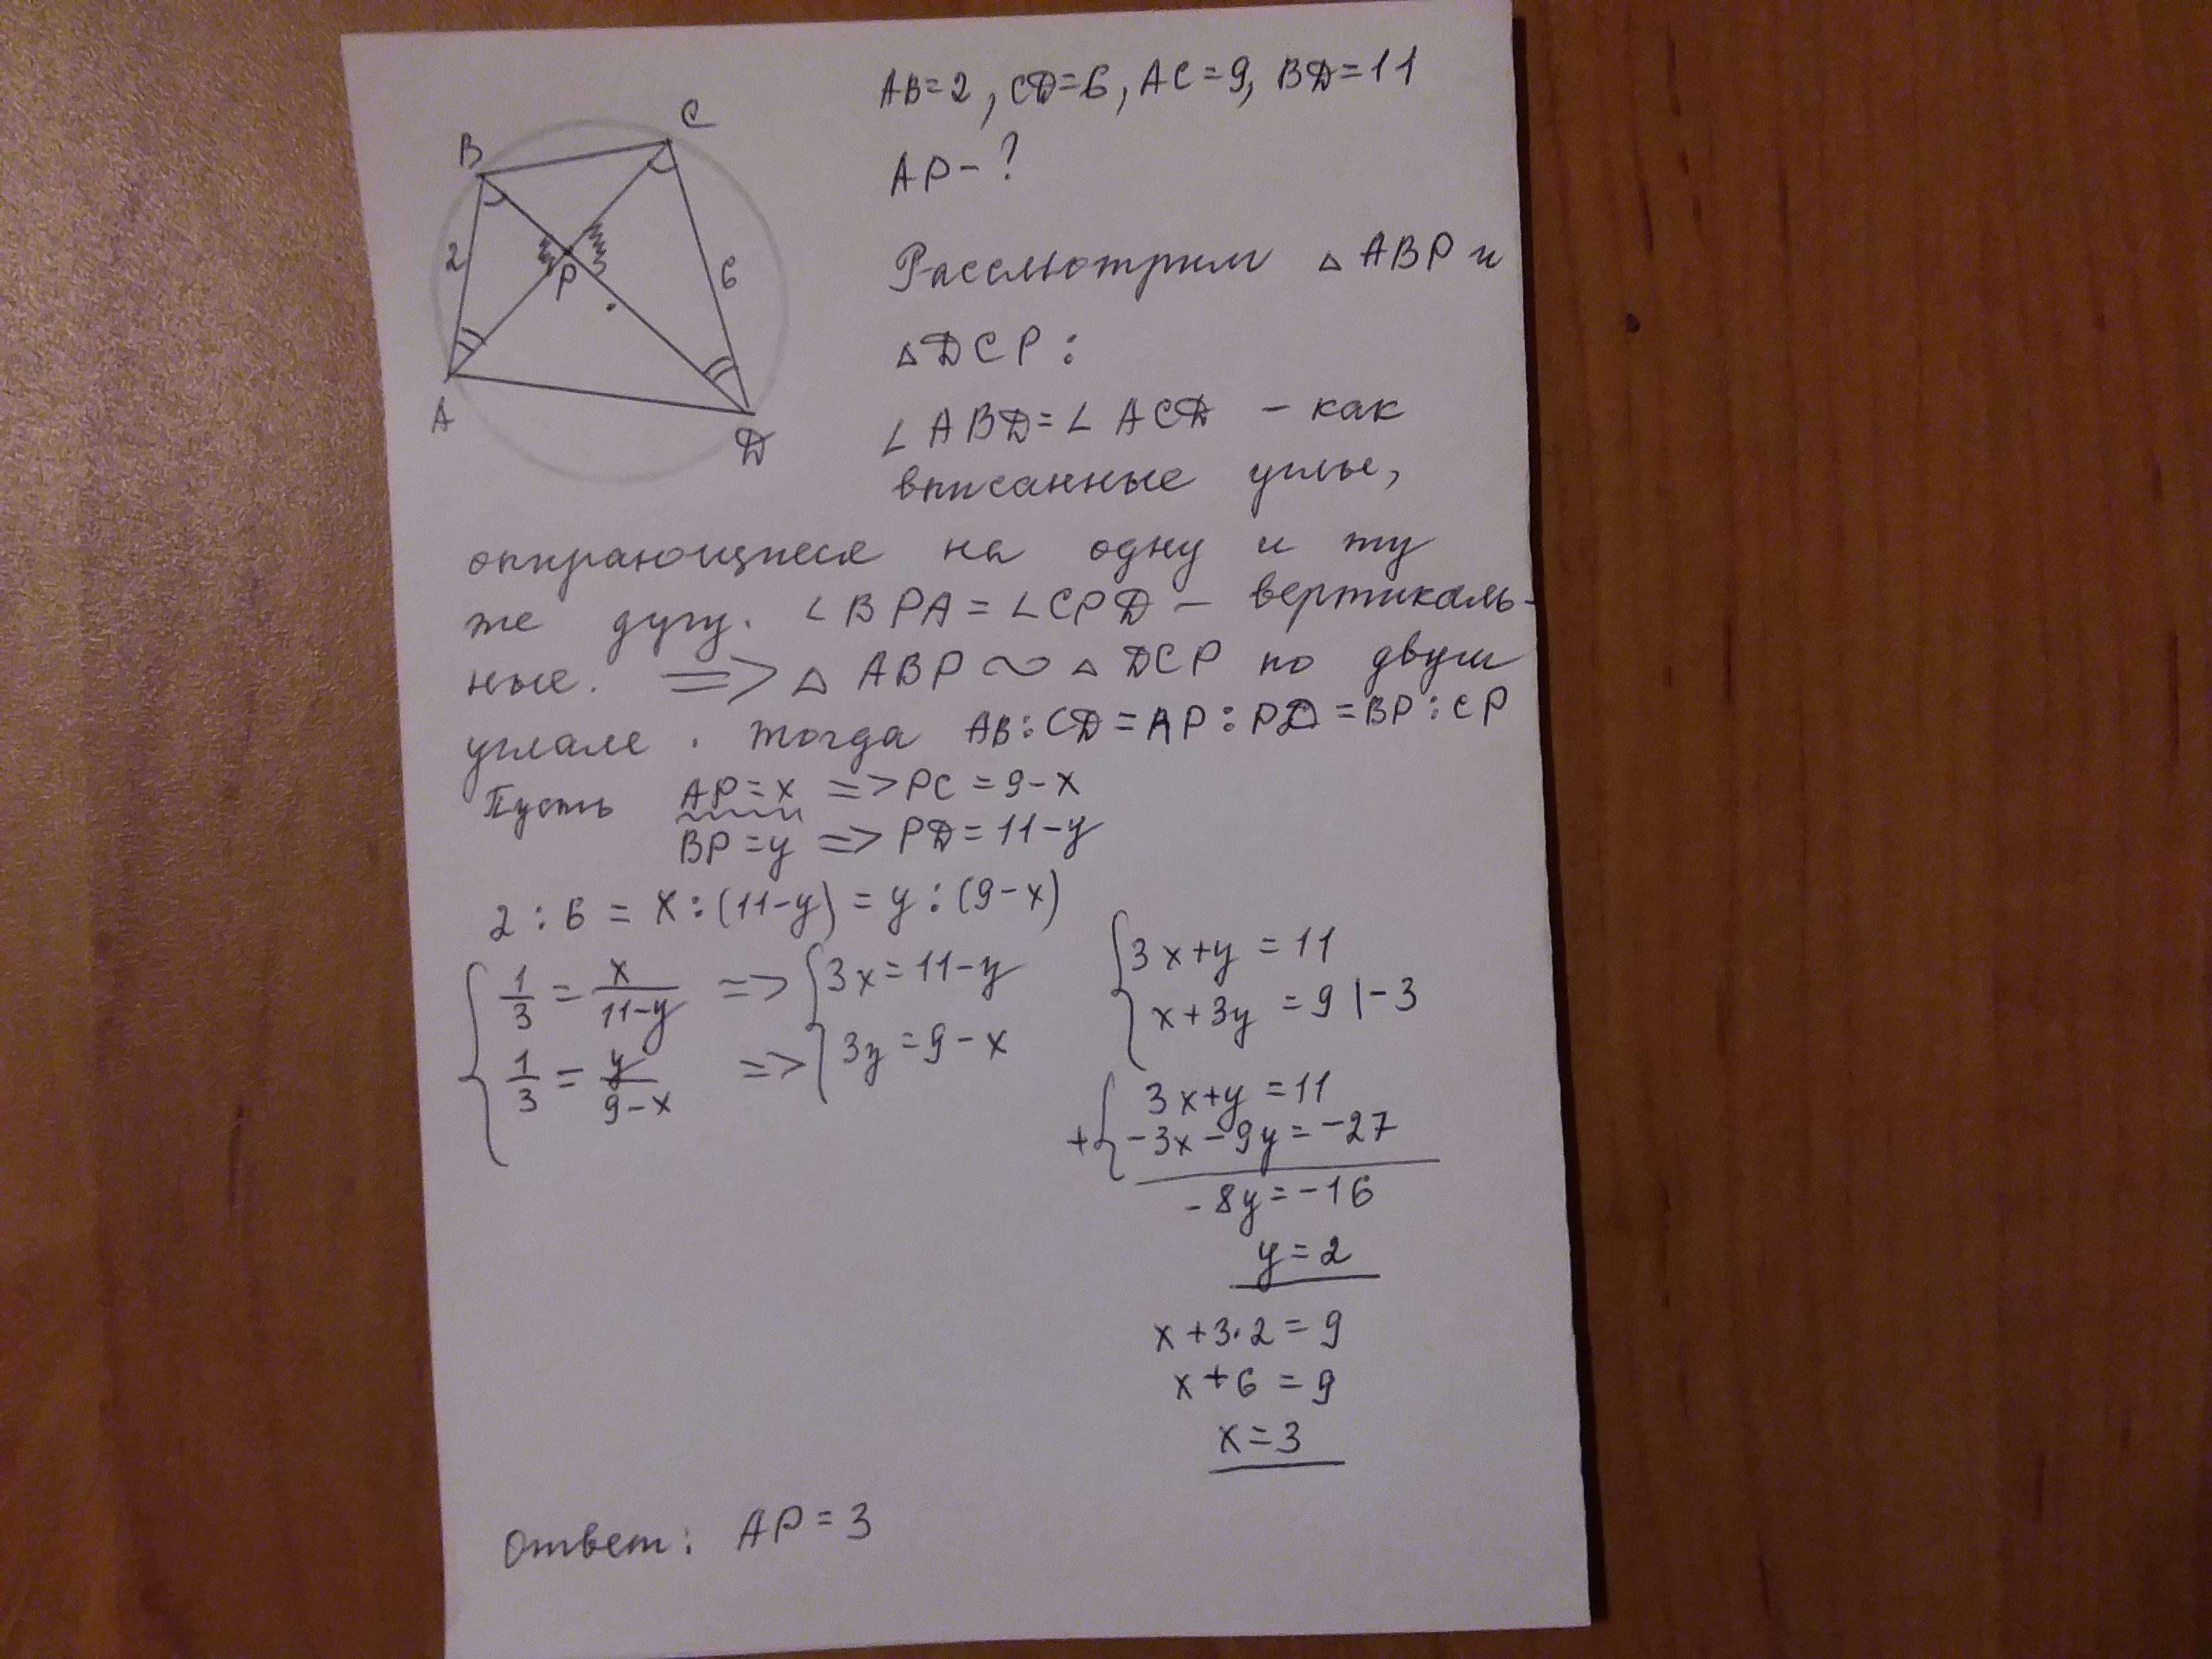 AB=2, CD=6, AC=9, BD=11
AP-?
B
C
2
P
6
A
D
Рассмотрим △ABP и
△DCP:
∠ABD=∠ACD - как
вписанные углы,
опирающиеся на одну и ту
же дугу. ∠BPA=∠CPD - вертикаль-
ные. => △ABP ~ △DCP по двум
углам. Тогда AB:CD=AP:PD=BP:CP
Пусть AP=x => PC=9-x
BP=y => PD=11-y
2:6=x:(11-y)=y:(9-x)
{ 1/3 = x/(11-y) => { 3x=11-y
{ 1/3 = y/(9-x) => { 3y=9-x
{ 3x+y=11
{ x+3y=9 |-3
+{ 3x+y=11
-3x-9y=-27
-8y=-16
y=2
x+3·2=9
x+6=9
x=3
Ответ: AP=3